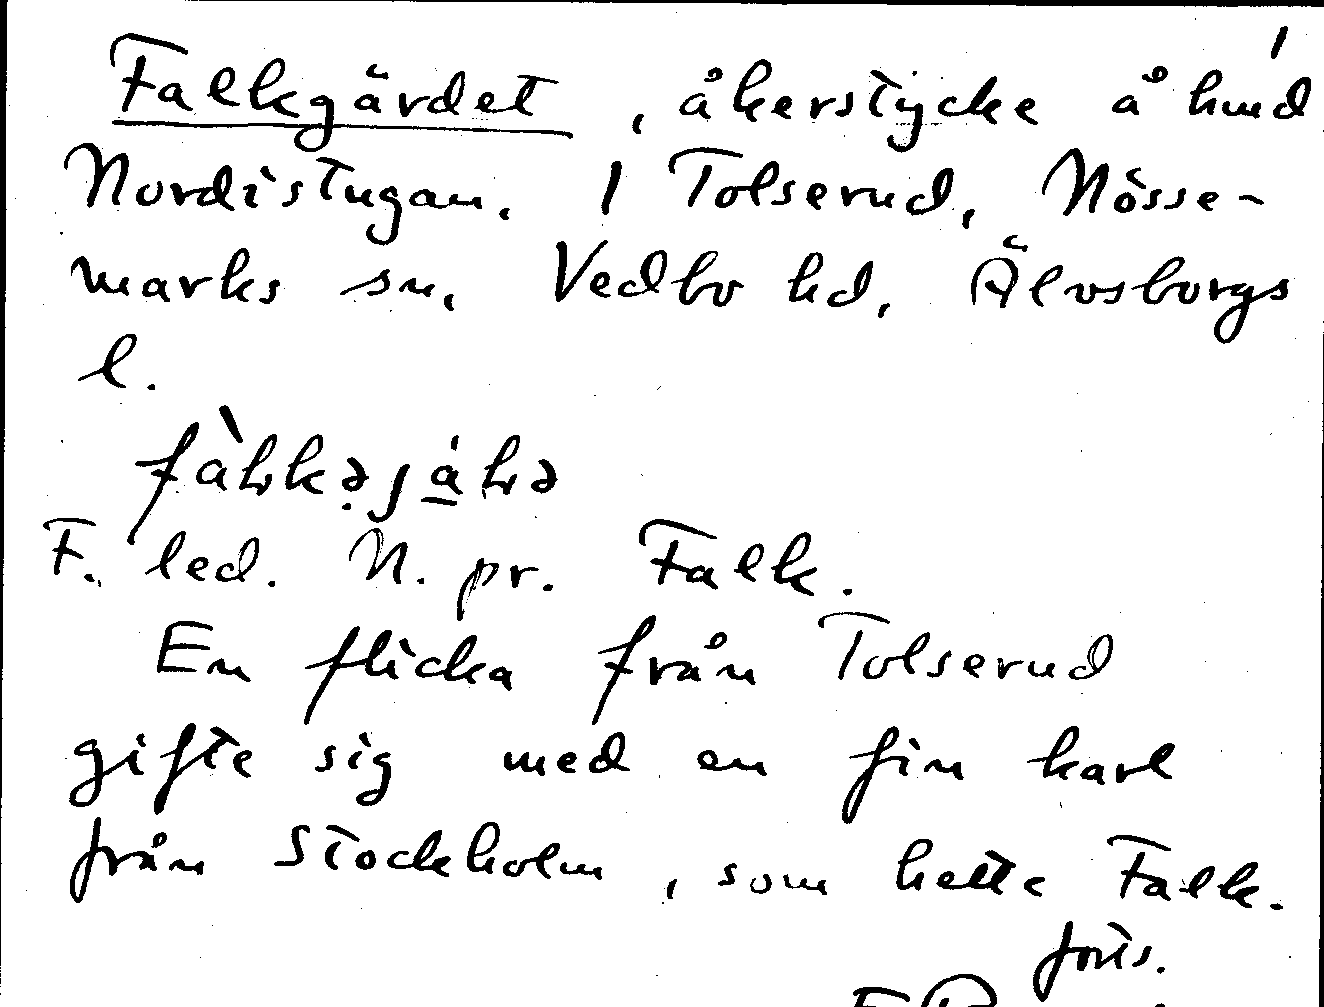 1
Falkgärdet, åkerstycke å hmd
Nordistugan. 1 Tolserud, Nösse-
marks sn, Vedbo hd, Älvsborgs
l.
F. led. N. pr. Falk.
En flicka från Tolserud
gifte sig med en fin karl
från Stockholm, som hette Falk.